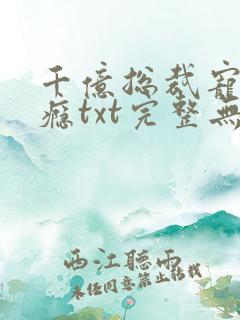 千億總裁寵
癮txt完整無
西江聽雨
未经同意禁止转载